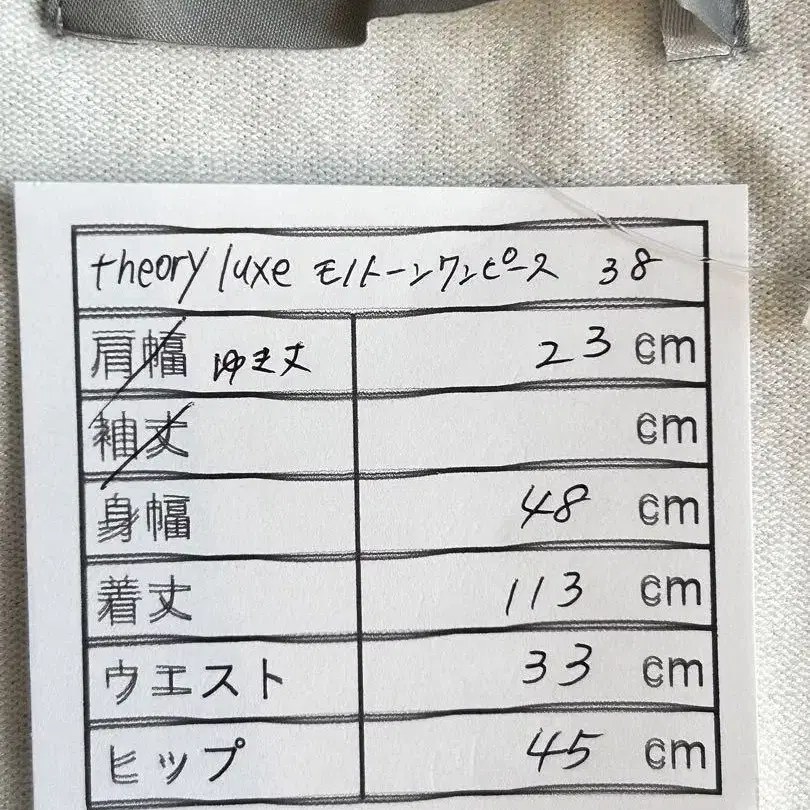 theory luxe モノトーンワンピース 38
肩幅 ゆき丈 23 cm
袖丈 cm
身幅 48 cm
着丈 113 cm
ウエスト 33 cm
ヒップ 45 cm